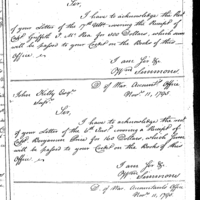 Sir,
I have to acknowledge the Rect
of your Letter of the 17th Ult. covering the Receipt of
Capt Griffith J. McRea for 400 Dollars, which sum
will be passed to your Credit on the Books of this
Office
I am Sir &c
Wm Simmons
D. of War Accounts Office
Novr 11, 1795
John Kelly Esqr
Sir,
I have to acknowledge the rect
of your Letter of the Inst, covering a Receipt of
Capt Benjamin for Dollars, which Sum
will be passed to your Credit on the Books of this
Office
I am Sir &c
Wm Simmons
D. of War Accountants Office
Novr 11, 1795